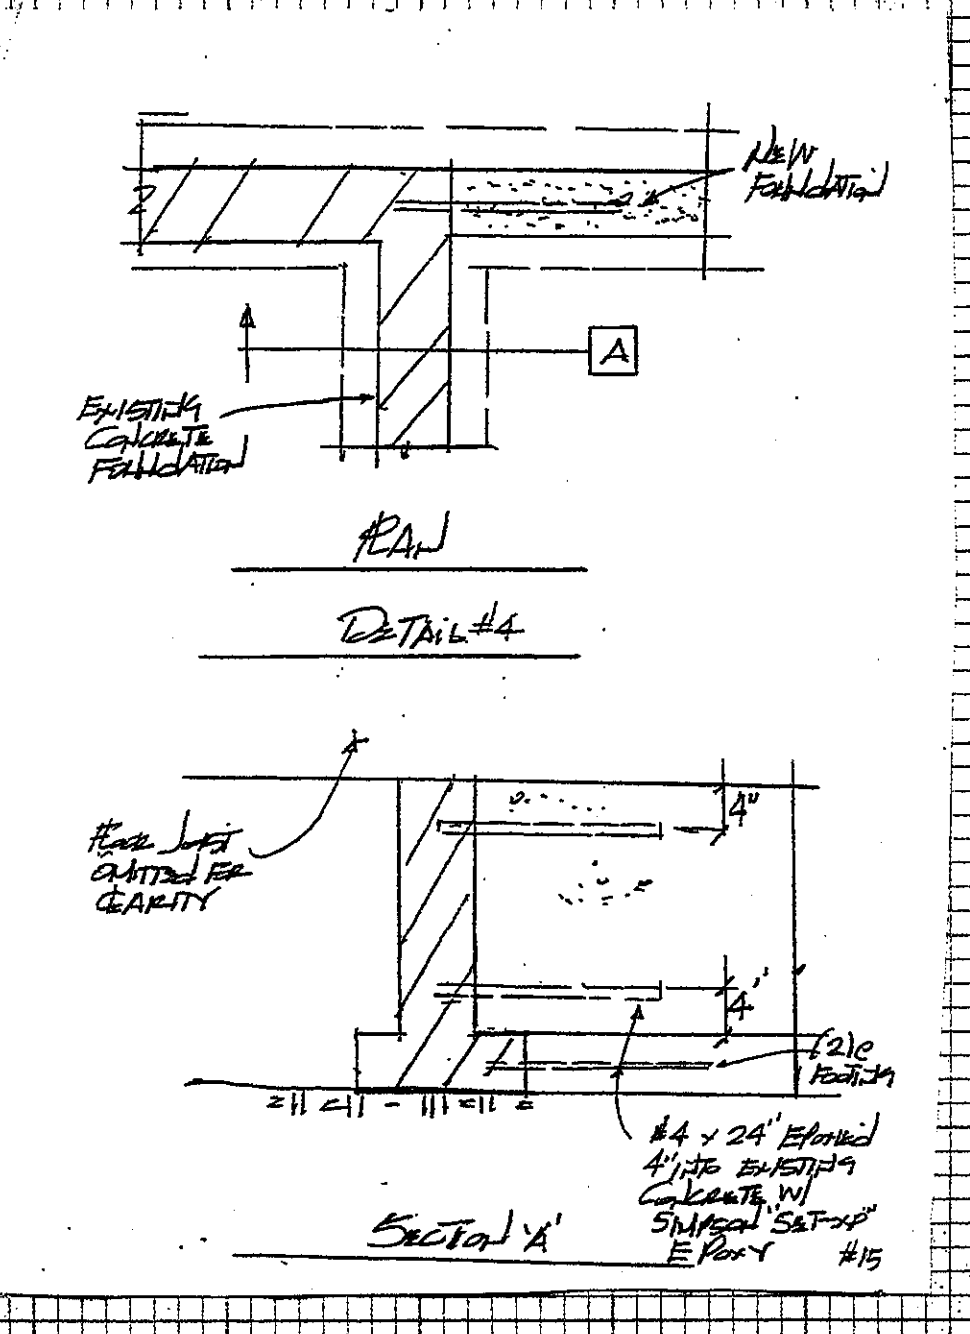 NEW
FOUNDATION
A
EXISTING
CONCRETE
FOUNDATION
PLAN
DETAIL #4
4"
FLOOR JOIST
OMITTED FOR
CLARITY
4"
(2) @
FOOTING
#4 x 24" EPOXIED
4" INTO EXISTING
CONCRETE W/
SIMPSON "SET-XP"
EPOXY #15
SECTION 'A'